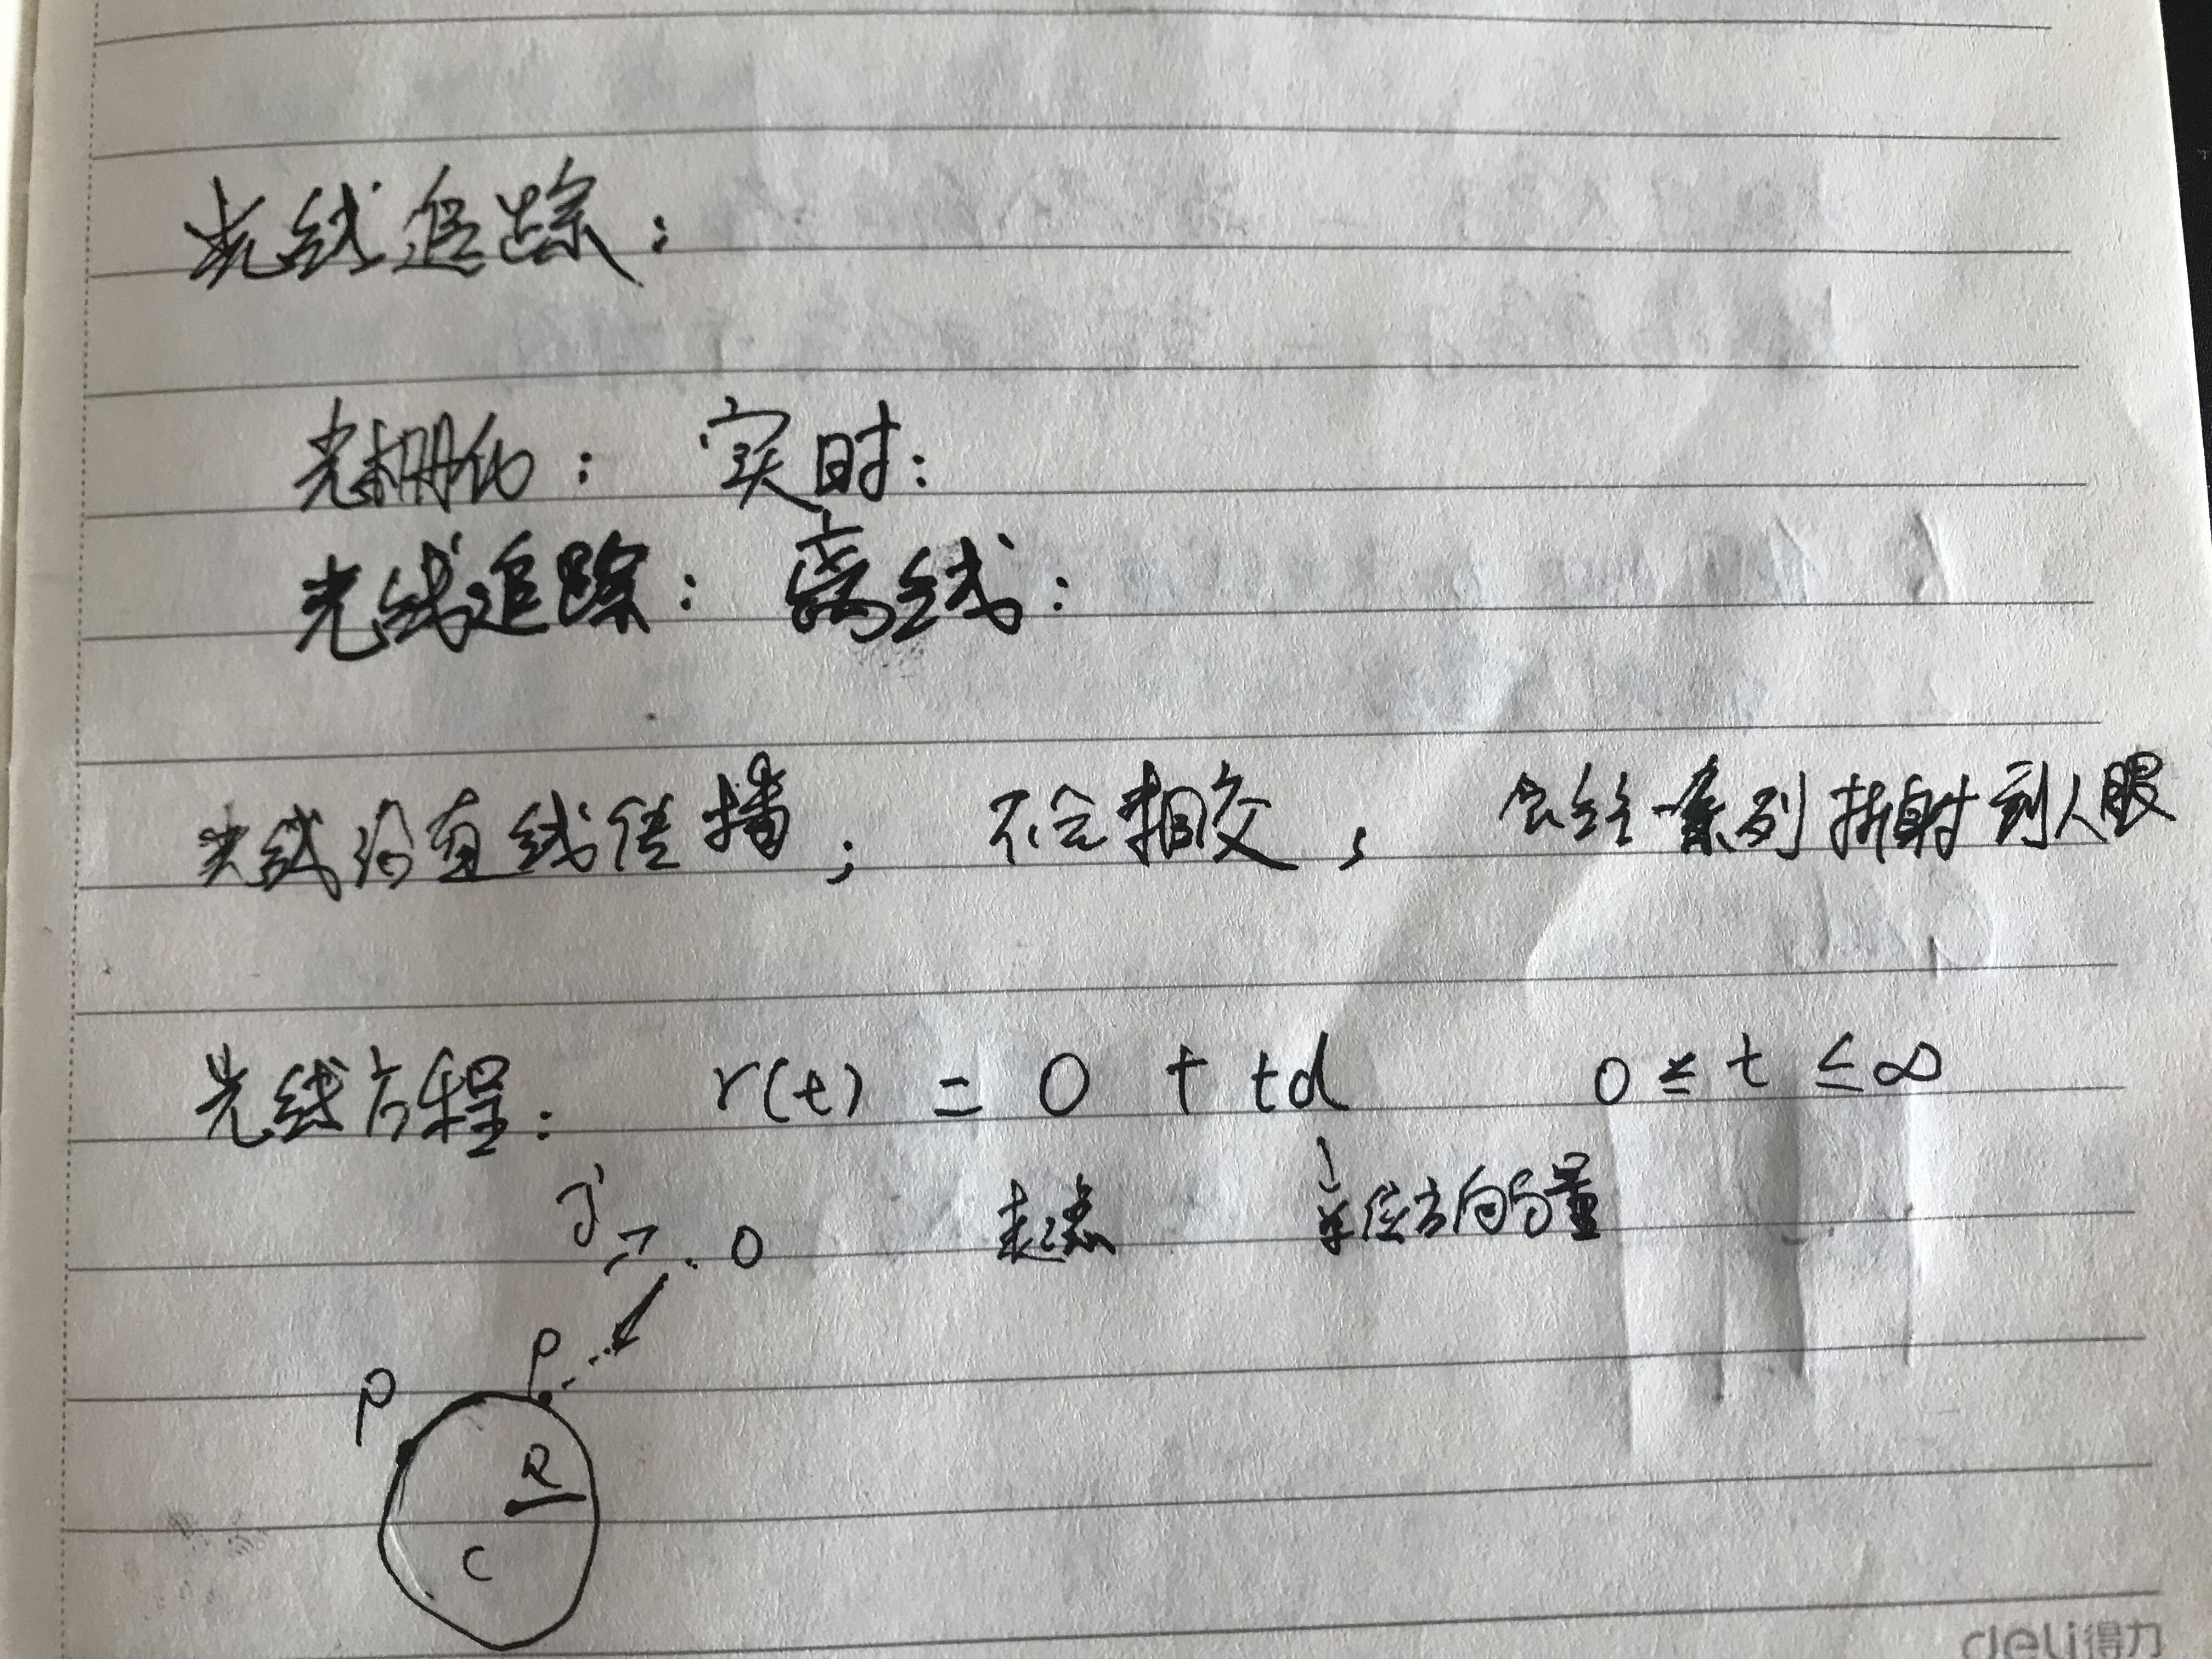 光线追踪：
光栅化： 实时：
光线追踪： 离线：
光线沿直线传播； 不会相交， 会经一系列折射到人眼
光线方程： r(t) = O + td 0 ≤ t ≤ ∞
起点 单位方向向量
O
P
P
R
C
deli得力